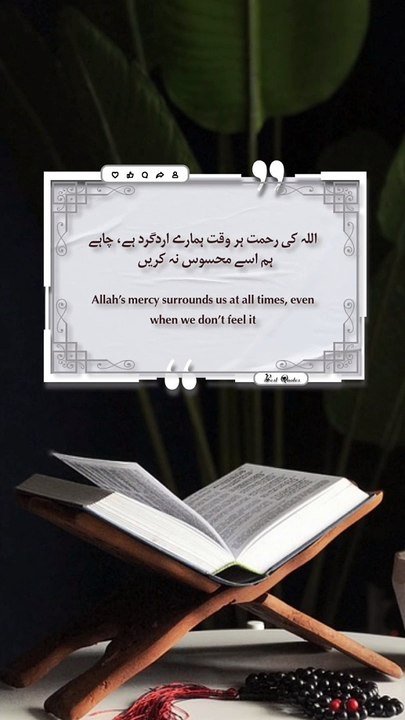 اللہ کی رحمت ہر وقت ہمارے اردگرد ہے، چاہے
ہم اسے محسوس نہ کریں
Allah’s mercy surrounds us at all times, even
when we don’t feel it
Best Quotes